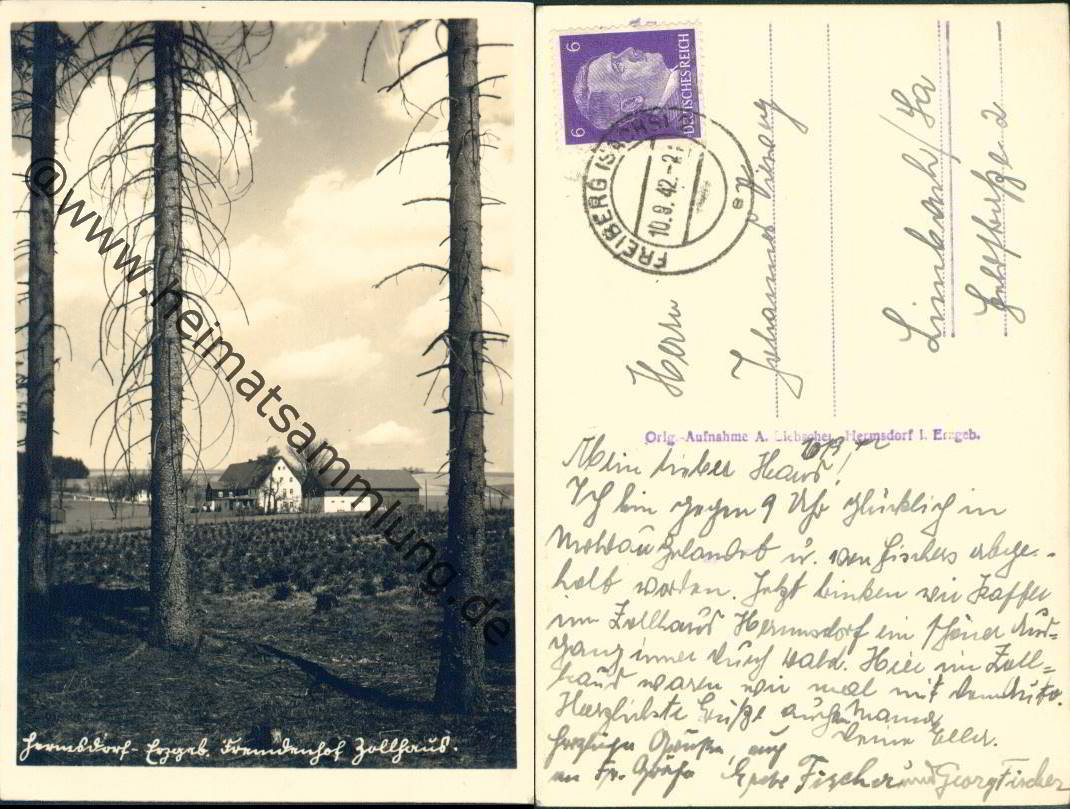 © www.heimatsammlung.de
Hermsdorf - Erzgeb. Fremdenhof Zollhaus.
6 6
DEUTSCHES REICH
FREIBERG (SACHS)
10.9.42
a
Herrn
Johannes
Limbach/Sa
Orig.-Aufnahme A. Liebscher, Hermsdorf i. Erzgeb.
10/9. 42
Mein lieber Hans!
Ich bin gegen 9 Uhr glücklich in
Moldau gelandet u. von Fischers abge-
holt worden. Jetzt trinken wir Kaffee
im Zollhaus Hermsdorf ein schöner Aus-
gang immer durch Wald. Hier im Zoll-
haus waren wir mal mit dem Auto.
Herzliebste Grüße auch an Mama
Deine Elln.
herzliche Grüße auch
an Fr. Grete Fischer und Georg Fischer